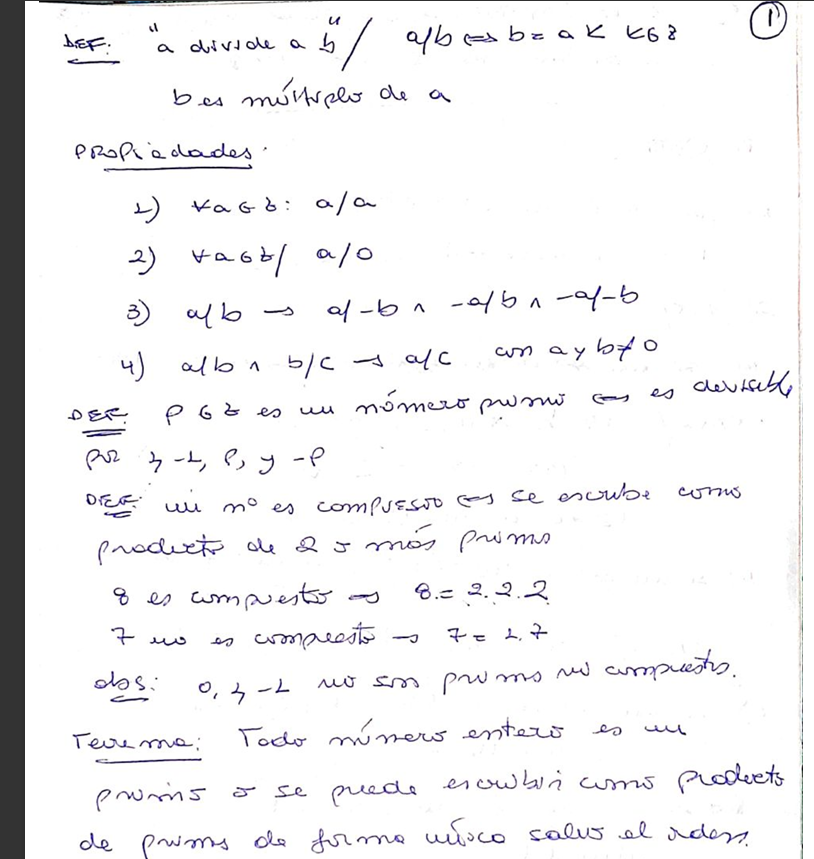 ①
DEF: "a divide a b" / a/b ⇔ b = a K K∈Z
b es múltiplo de a
PROPiedades:
1) ∀a∈Z: a/a
2) ∀a∈Z/ a/0
3) a/b → a/-b ∧ -a/b ∧ -a/-b
4) a/b ∧ b/c → a/c con a y b≠0
DEF: P∈Z es un número primo ⇔ es devisible
por 1, -1, P, y -P
DEF: un nº es compuesto ⇔ se escribe como
producto de 2 o más primo
8 es compuesto → 8 = 2.2.2
7 no es compuesto → 7 = 1.7
obs: 0, 1, -1 no son primo ni compuestos.
Teorema: Todo número entero es un
primo o se puede escribir como producto
de primos de forma única salvo el orden.